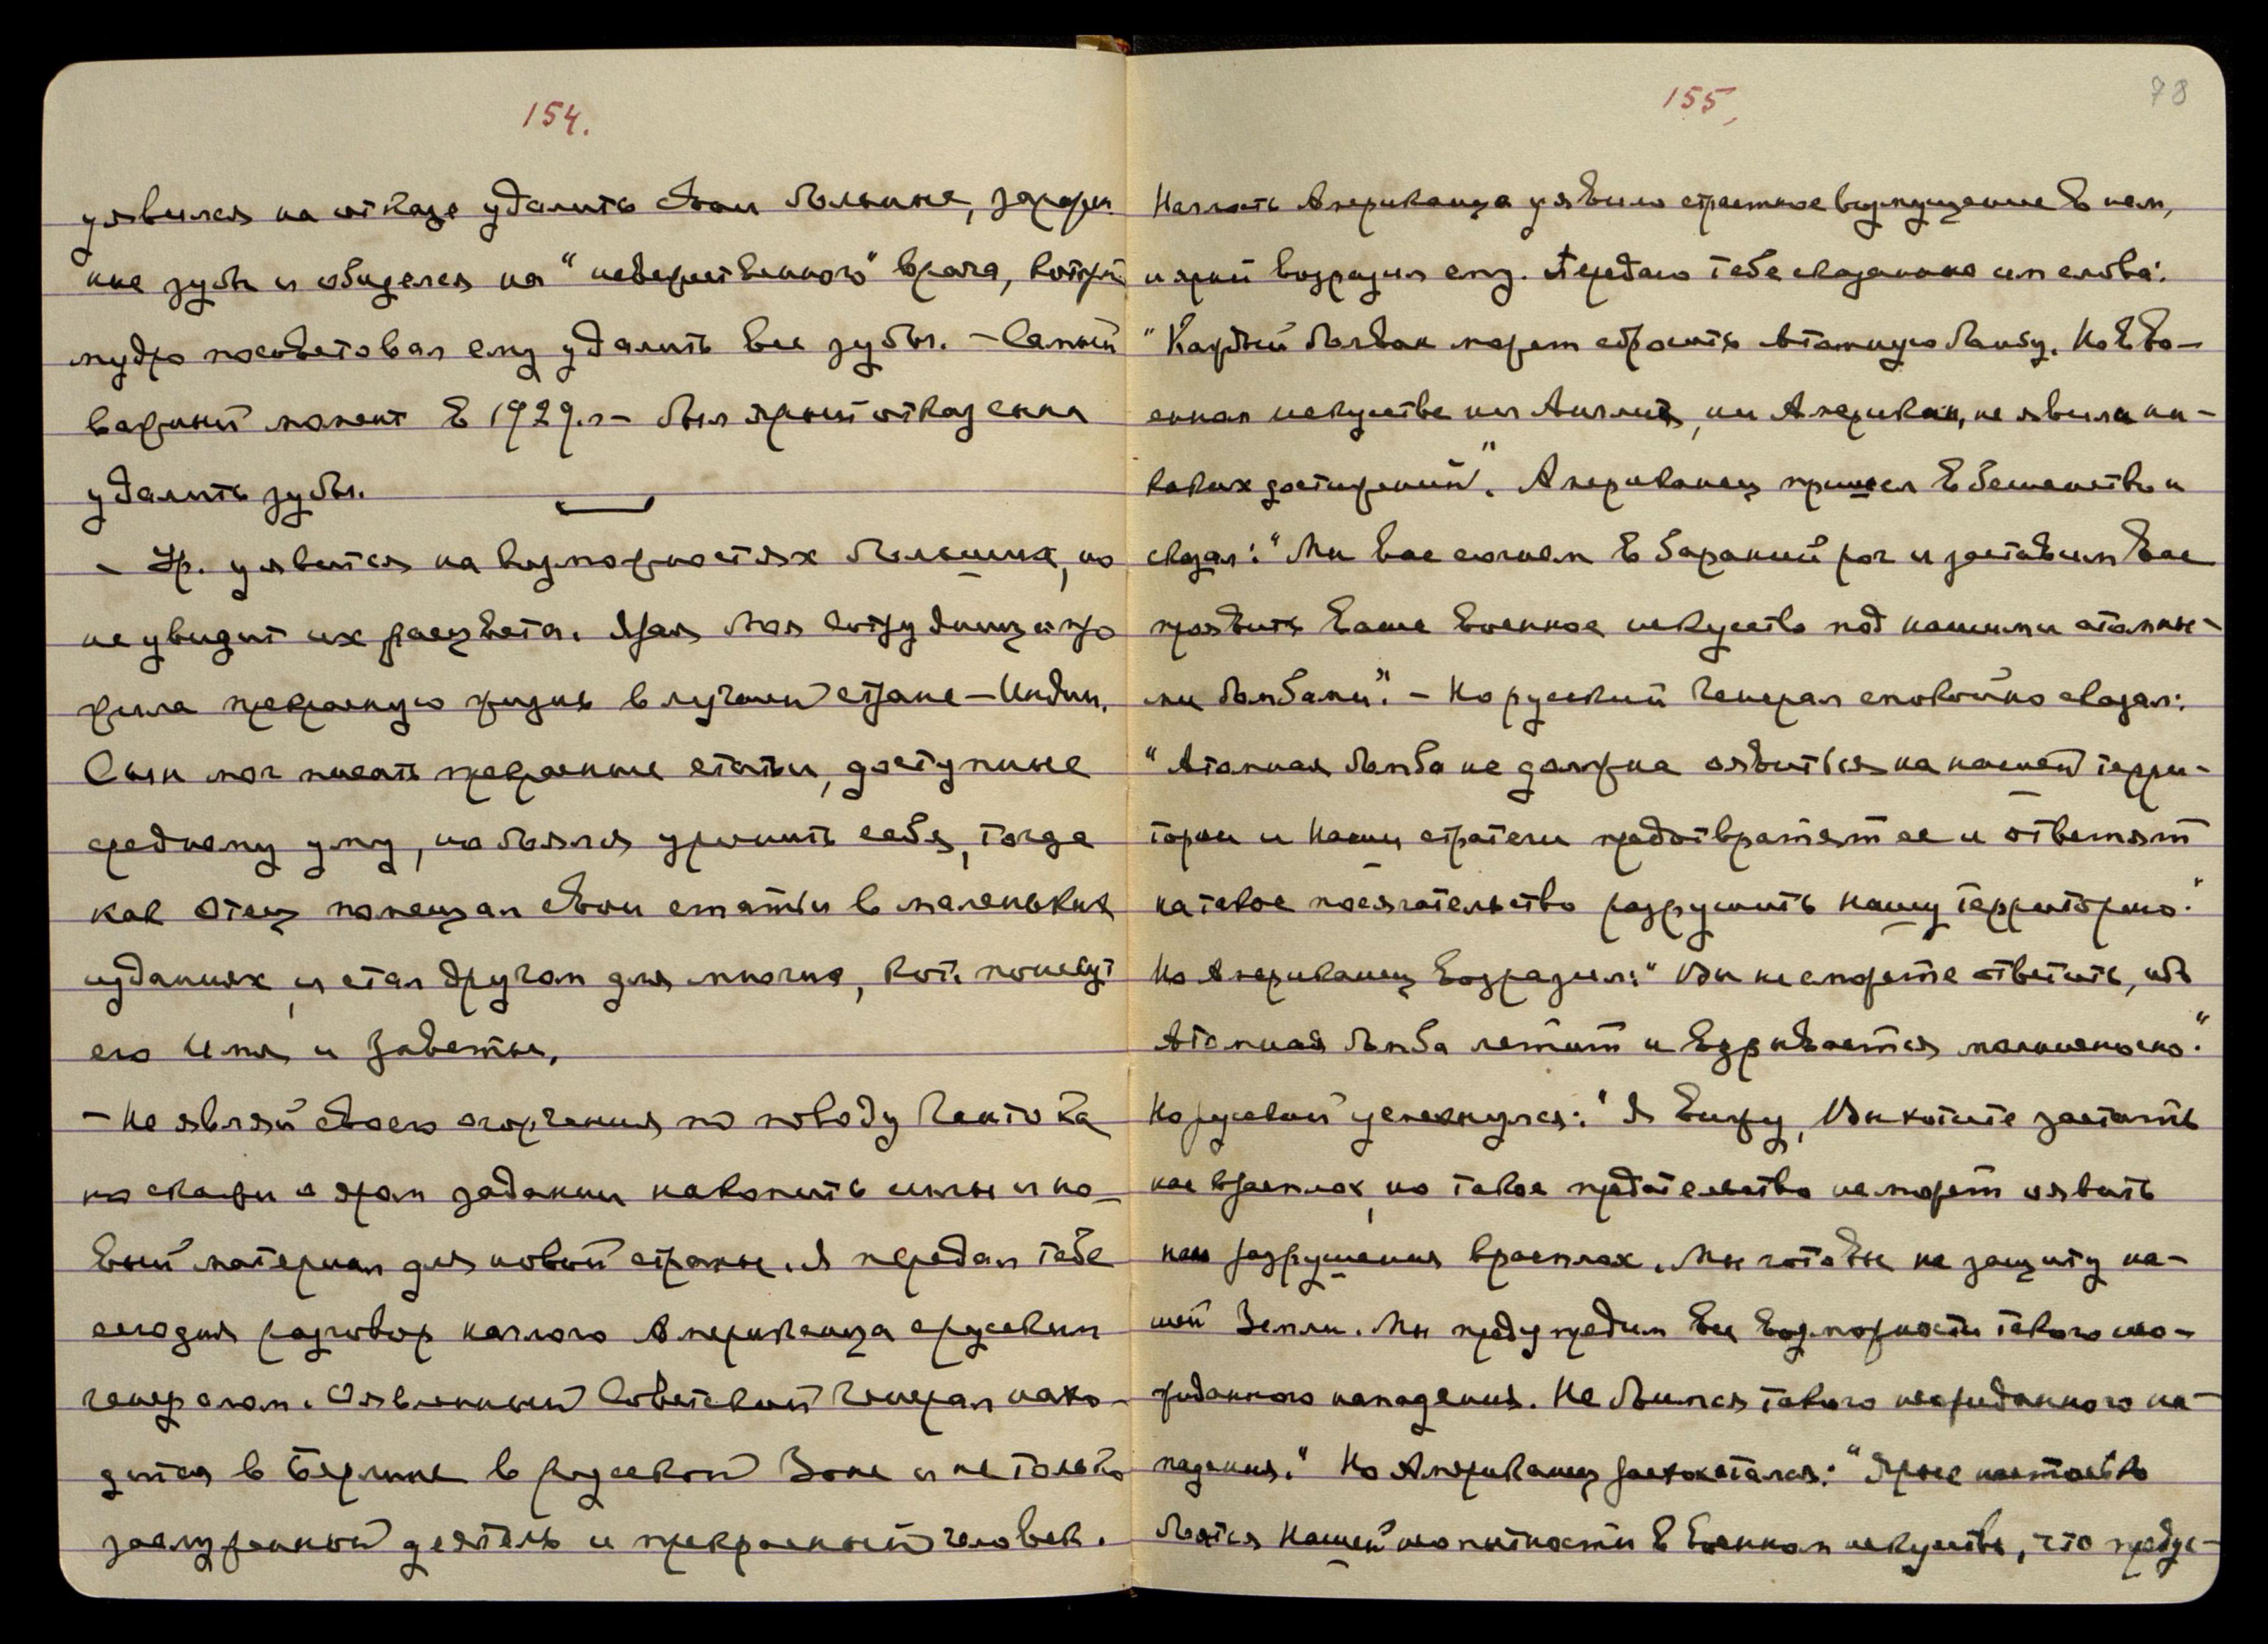 154.
уявился на отказе удалить свои больные,
ные зубы и обиделся на "невежественного" врача, который
мудро посоветовал ему удалить все зубы. – Самый
важный момент в 1929 г. – был ярый отказ
удалить зубы.
– Ур. уявится на возможностях больших, но
не увидит их расцвета. Ярая моя сотрудница про
жила прекрасную жизнь в лучшей стране – Индии.
Сын мог писать прекрасные статьи, доступные
среднему уму, но боялся уронить себя, тогда
как Отец помещал свои статьи в маленьких
изданиях, и стал другом для многих, кот. понесут
его Имя и Заветы.
– Не являй своего огорчения по поводу
но скажи о яром задании накопить силы и но-
вый материал для новой страны. Я передал тебе
сегодня разговор наглого Американца с русским
генералом. Оявленный Советский Генерал нахо-
дится в Берлине в русской Зоне и не только
заслуженный деятель и прекрасный человек.
155, 78
Наглость Американца уявило страстное возмущение в нем,
и ярый возразил ему. Передаю тебе сказанные им слова:
"Каждый болван может сбросить атомную бомбу. Но в во-
енном искусстве ни Англия, ни Америка, не явила ни-
каких достижений". Американец пришел в бешенство и
сказал: "Мы вас согнем в бараний рог и заставим вас
проявить ваше военное искусство под нашими атомны-
ми бомбами". – Но русский Генерал спокойно сказал:
"Атомная бомба не должна оявиться на нашей терри-
тории и наши стратеги предотвратят ее и ответят
на такое посягательство разрушить нашу территорию."
Но Американец возразил: "Вы не сможете ответить, ибо
Атомная бомба летит и взрывается молниеносно."
Но русский усмехнулся: "Я вижу, Вы хотите застать
нас врасплох, но такое предательство не может оявить
нам разрушения врасплох. Мы готовы на защиту на-
шей Земли. Мы предупредим все возможности такого нео-
жиданного нападения. Не боимся такого неожиданного на-
падения." Но Американец расхохотался: "Ярые настолько
боятся нашей неопытности в военном искусстве, что преду-